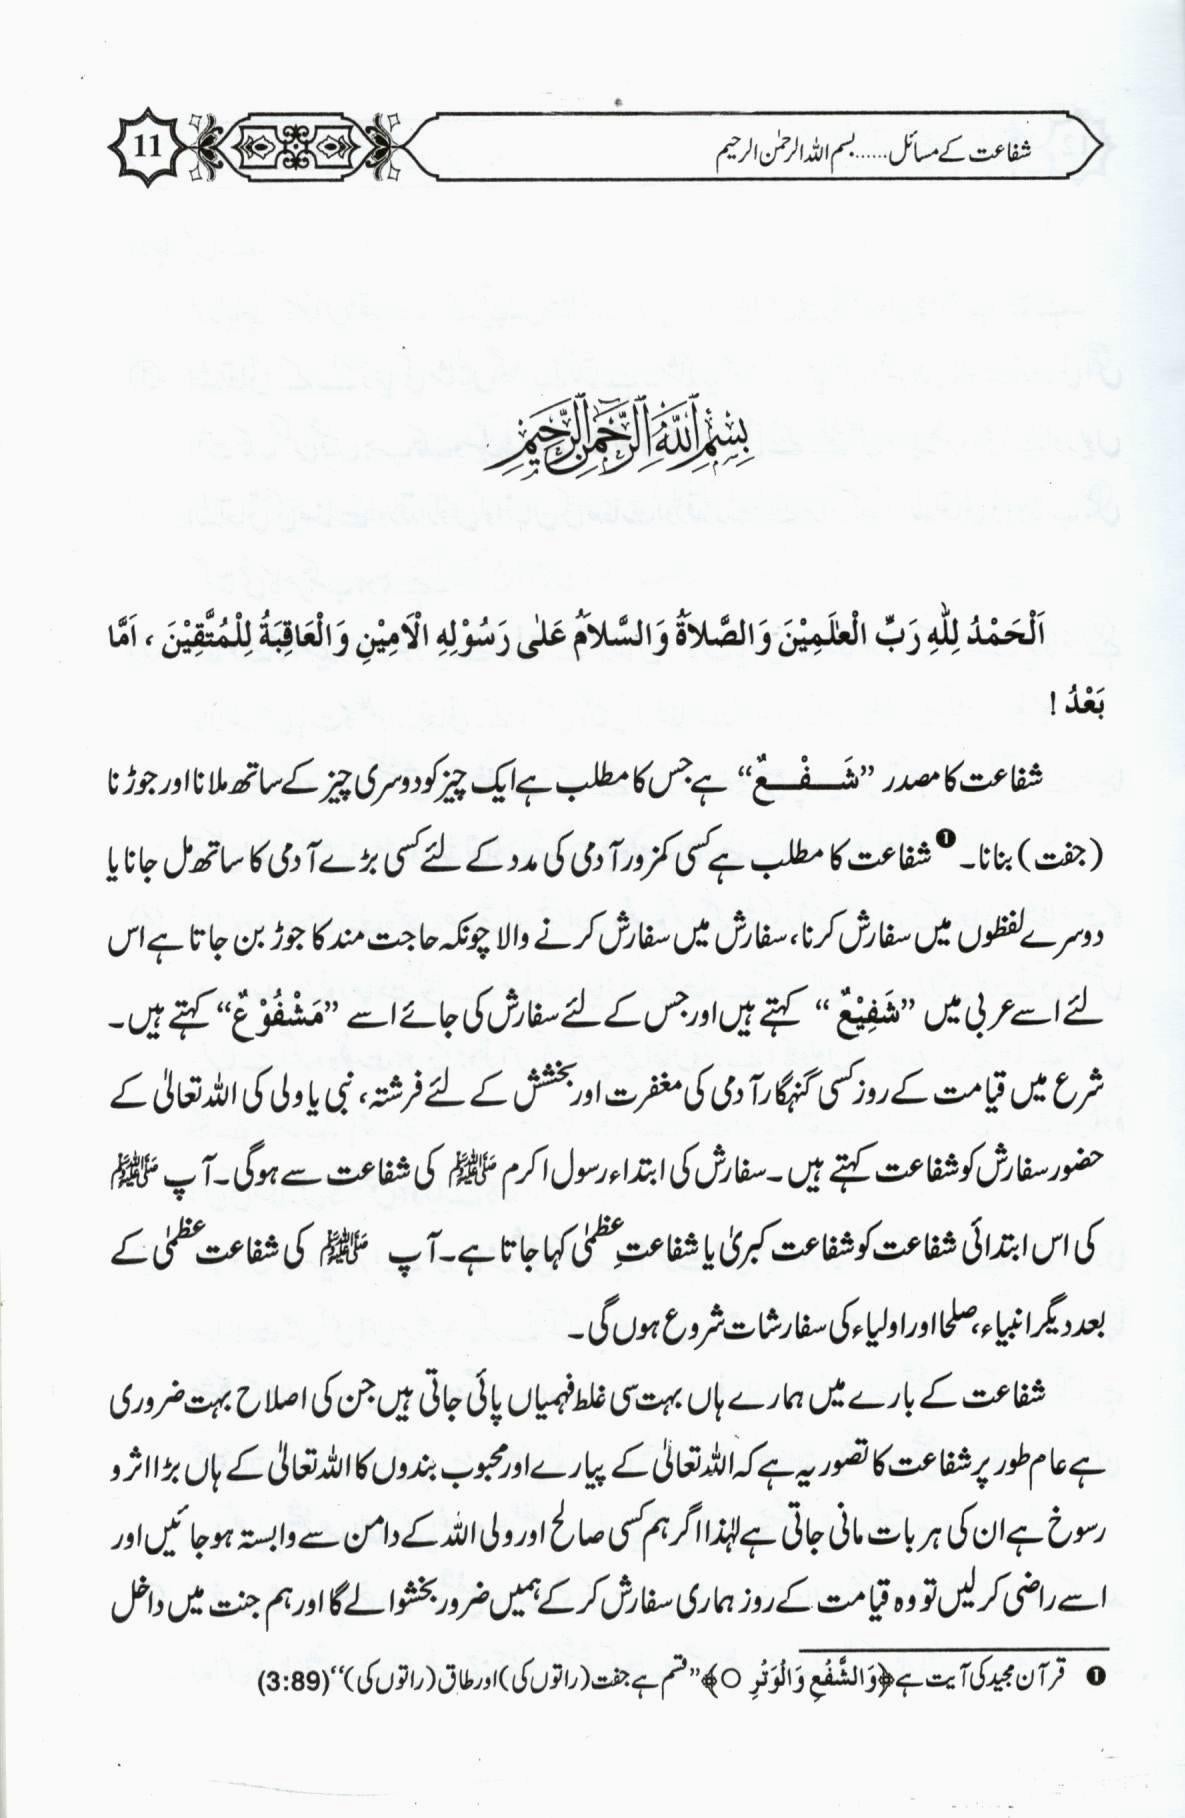 شفاعت کے مسائل......بسم اللہ الرحمٰن الرحیم
11
بِسْمِ ٱللَّهِ ٱلرَّحْمَٰنِ ٱلرَّحِيمِ
اَلْحَمْدُ لِلّٰهِ رَبِّ الْعٰلَمِيْنَ وَالصَّلاَةُ وَالسَّلاَمُ عَلٰى رَسُوْلِهِ الْاَمِيْنِ وَالْعَاقِبَةُ لِلْمُتَّقِيْنَ ، اَمَّا
بَعْدُ !
شفاعت کا مصدر ”شَــفْــعٌ“ ہے جس کا مطلب ہے ایک چیز کو دوسری چیز کے ساتھ ملانا اور جوڑنا
(جفت) بنانا۔❶ شفاعت کا مطلب ہے کسی کمزور آدمی کی مدد کے لئے کسی بڑے آدمی کا ساتھ مل جانا یا
دوسرے لفظوں میں سفارش کرنا، سفارش میں سفارش کرنے والا چونکہ حاجت مند کا جوڑ بن جاتا ہے اس
لئے اسے عربی میں ”شَفِيْعٌ“ کہتے ہیں اور جس کے لئے سفارش کی جائے اسے ”مَشْفُوْعٌ“ کہتے ہیں۔
شرع میں قیامت کے روز کسی گنہگار آدمی کی مغفرت اور بخشش کے لئے فرشتہ، نبی یا ولی کی اللہ تعالیٰ کے
حضور سفارش کو شفاعت کہتے ہیں۔ سفارش کی ابتداء رسول اکرم ﷺ کی شفاعت سے ہوگی۔ آپ ﷺ
کی اس ابتدائی شفاعت کو شفاعت کبریٰ یا شفاعتِ عظمیٰ کہا جاتا ہے۔ آپ ﷺ کی شفاعت عظمیٰ کے
بعد دیگر انبیاء، صلحا اور اولیاء کی سفارشات شروع ہوں گی۔
شفاعت کے بارے میں ہمارے ہاں بہت سی غلط فہمیاں پائی جاتی ہیں جن کی اصلاح بہت ضروری
ہے عام طور پر شفاعت کا تصور یہ ہے کہ اللہ تعالیٰ کے پیارے اور محبوب بندوں کا اللہ تعالیٰ کے ہاں بڑا اثر و
رسوخ ہے ان کی ہر بات مانی جاتی ہے لہٰذا اگر ہم کسی صالح اور ولی اللہ کے دامن سے وابستہ ہوجائیں اور
اسے راضی کرلیں تو وہ قیامت کے روز ہماری سفارش کر کے ہمیں ضرور بخشوا لے گا اور ہم جنت میں داخل
❶ قرآن مجید کی آیت ہے ﴿وَالشَّفْعِ وَالْوَتْرِ ○﴾ ”قسم ہے جفت (راتوں کی) اور طاق (راتوں کی)“ (3:89)